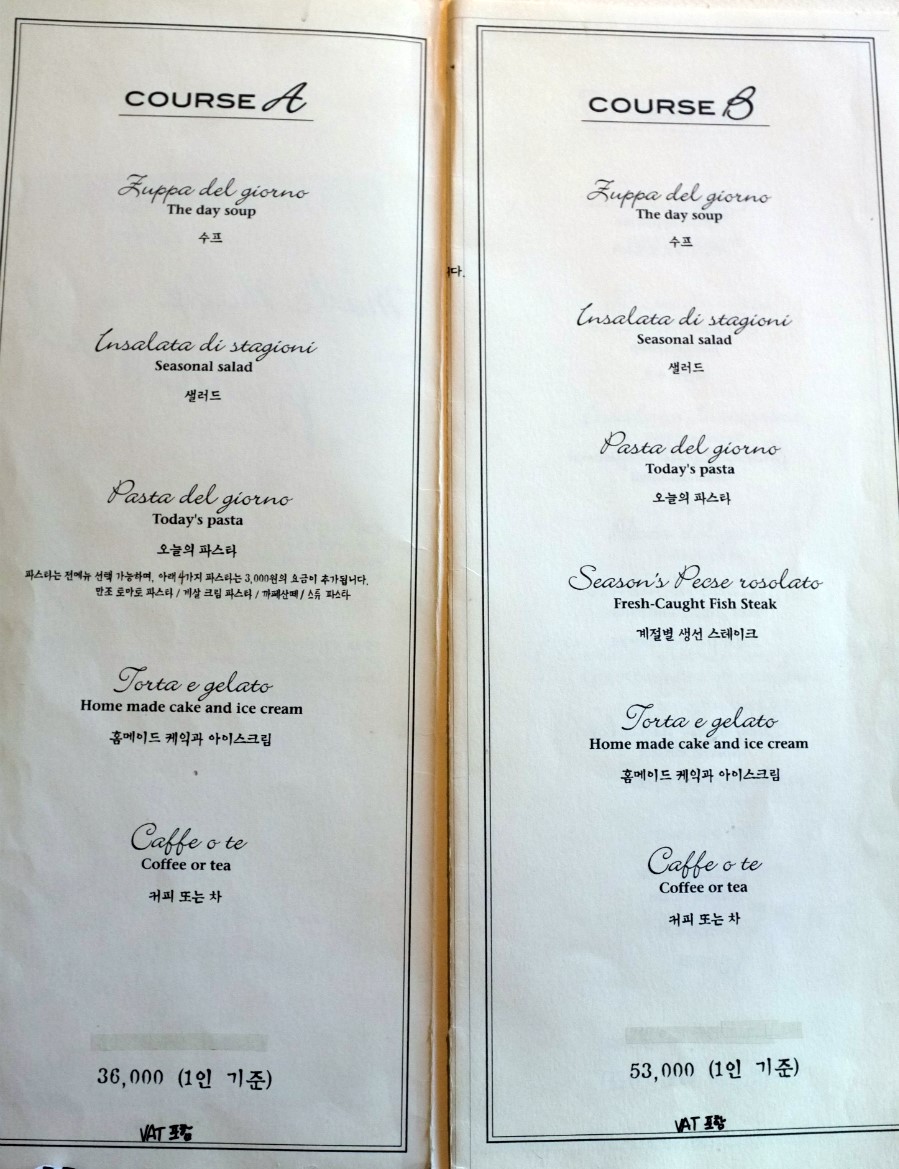 COURSE A
Zuppa del giorno
The day soup
수프
Insalata di stagioni
Seasonal salad
샐러드
Pasta del giorno
Today's pasta
오늘의 파스타
파스타는 전메뉴 선택 가능하며, 아래 4가지 파스타는 3,000원의 요금이 추가됩니다.
만조 로마로 파스타 / 게살 크림 파스타 / 까페산떼 / 스튜 파스타
Torta e gelato
Home made cake and ice cream
홈메이드 케익과 아이스크림
Caffe o te
Coffee or tea
커피 또는 차
36,000 (1인 기준)
VAT 포함
다.
COURSE B
Zuppa del giorno
The day soup
수프
Insalata di stagioni
Seasonal salad
샐러드
Pasta del giorno
Today's pasta
오늘의 파스타
Season's Pecse rosolato
Fresh-Caught Fish Steak
계절별 생선 스테이크
Torta e gelato
Home made cake and ice cream
홈메이드 케익과 아이스크림
Caffe o te
Coffee or tea
커피 또는 차
53,000 (1인 기준)
VAT 포함